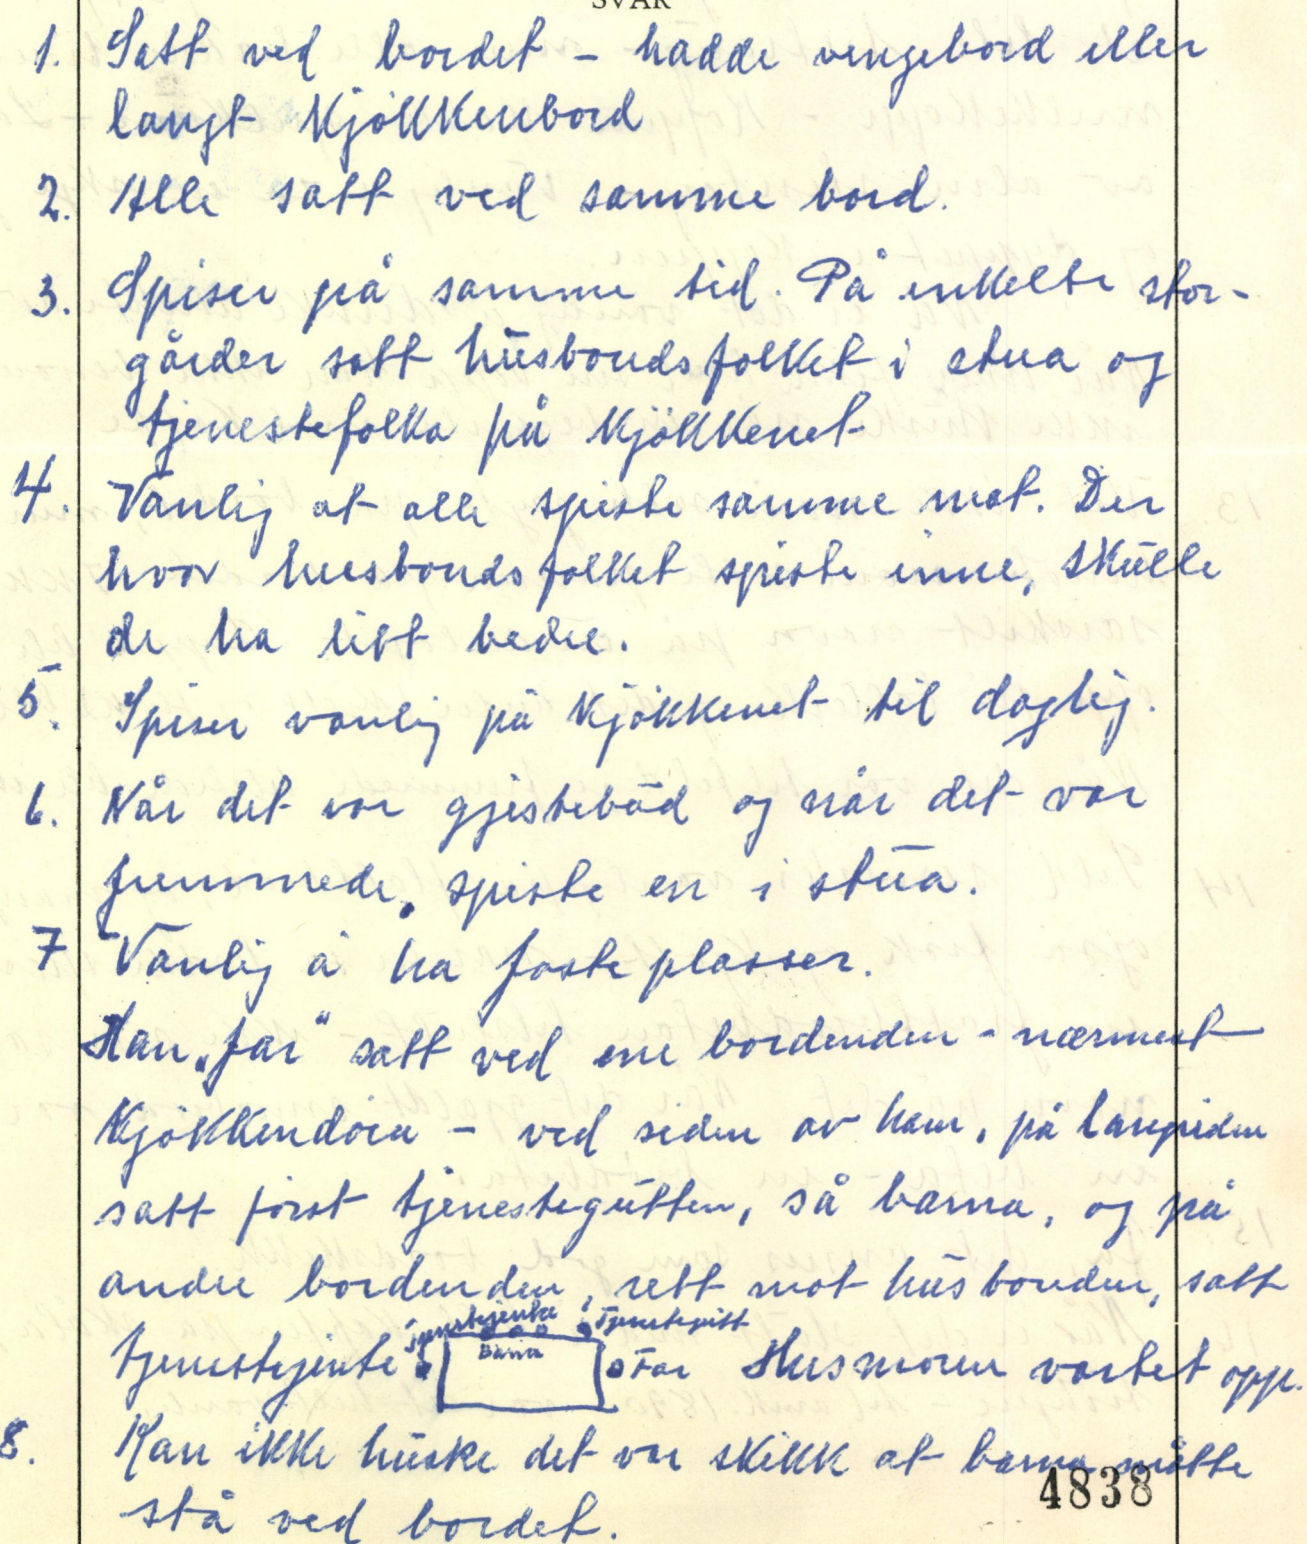 SVAR
1. Satt ved bordet - hadde vengebord eller
langt kjøkkenbord
2. Alle satt ved samme bord.
3. Spiser på samme tid. På enkelte stor-
gårder satt husbondsfolket i stua og
tjenestefolka på kjøkkenet
4. Vanlig at alle spiste samme mat. Der
hvor husbondsfolket spiste inne, skulle
de ha litt bedre.
5. Spiser vanlig på kjøkkenet til daglig.
6. Når det var gjestebud og når det var
fremmede, spiste en i stua.
7 Vanlig å ha faste plasser.
Han „far" satt ved ene bordenden - nærmest
kjøkkendøra - ved siden av ham, på langsiden
satt først tjenestegutten, så barna, og på
andre bordenden, rett mot husbonden, satt
tjenestejente
Tjenestejente Tjenestegutt
Barna
Far Husmoren vartet opp.
8. Kan ikke huske det var skikk at barna måtte
stå ved bordet.
4838